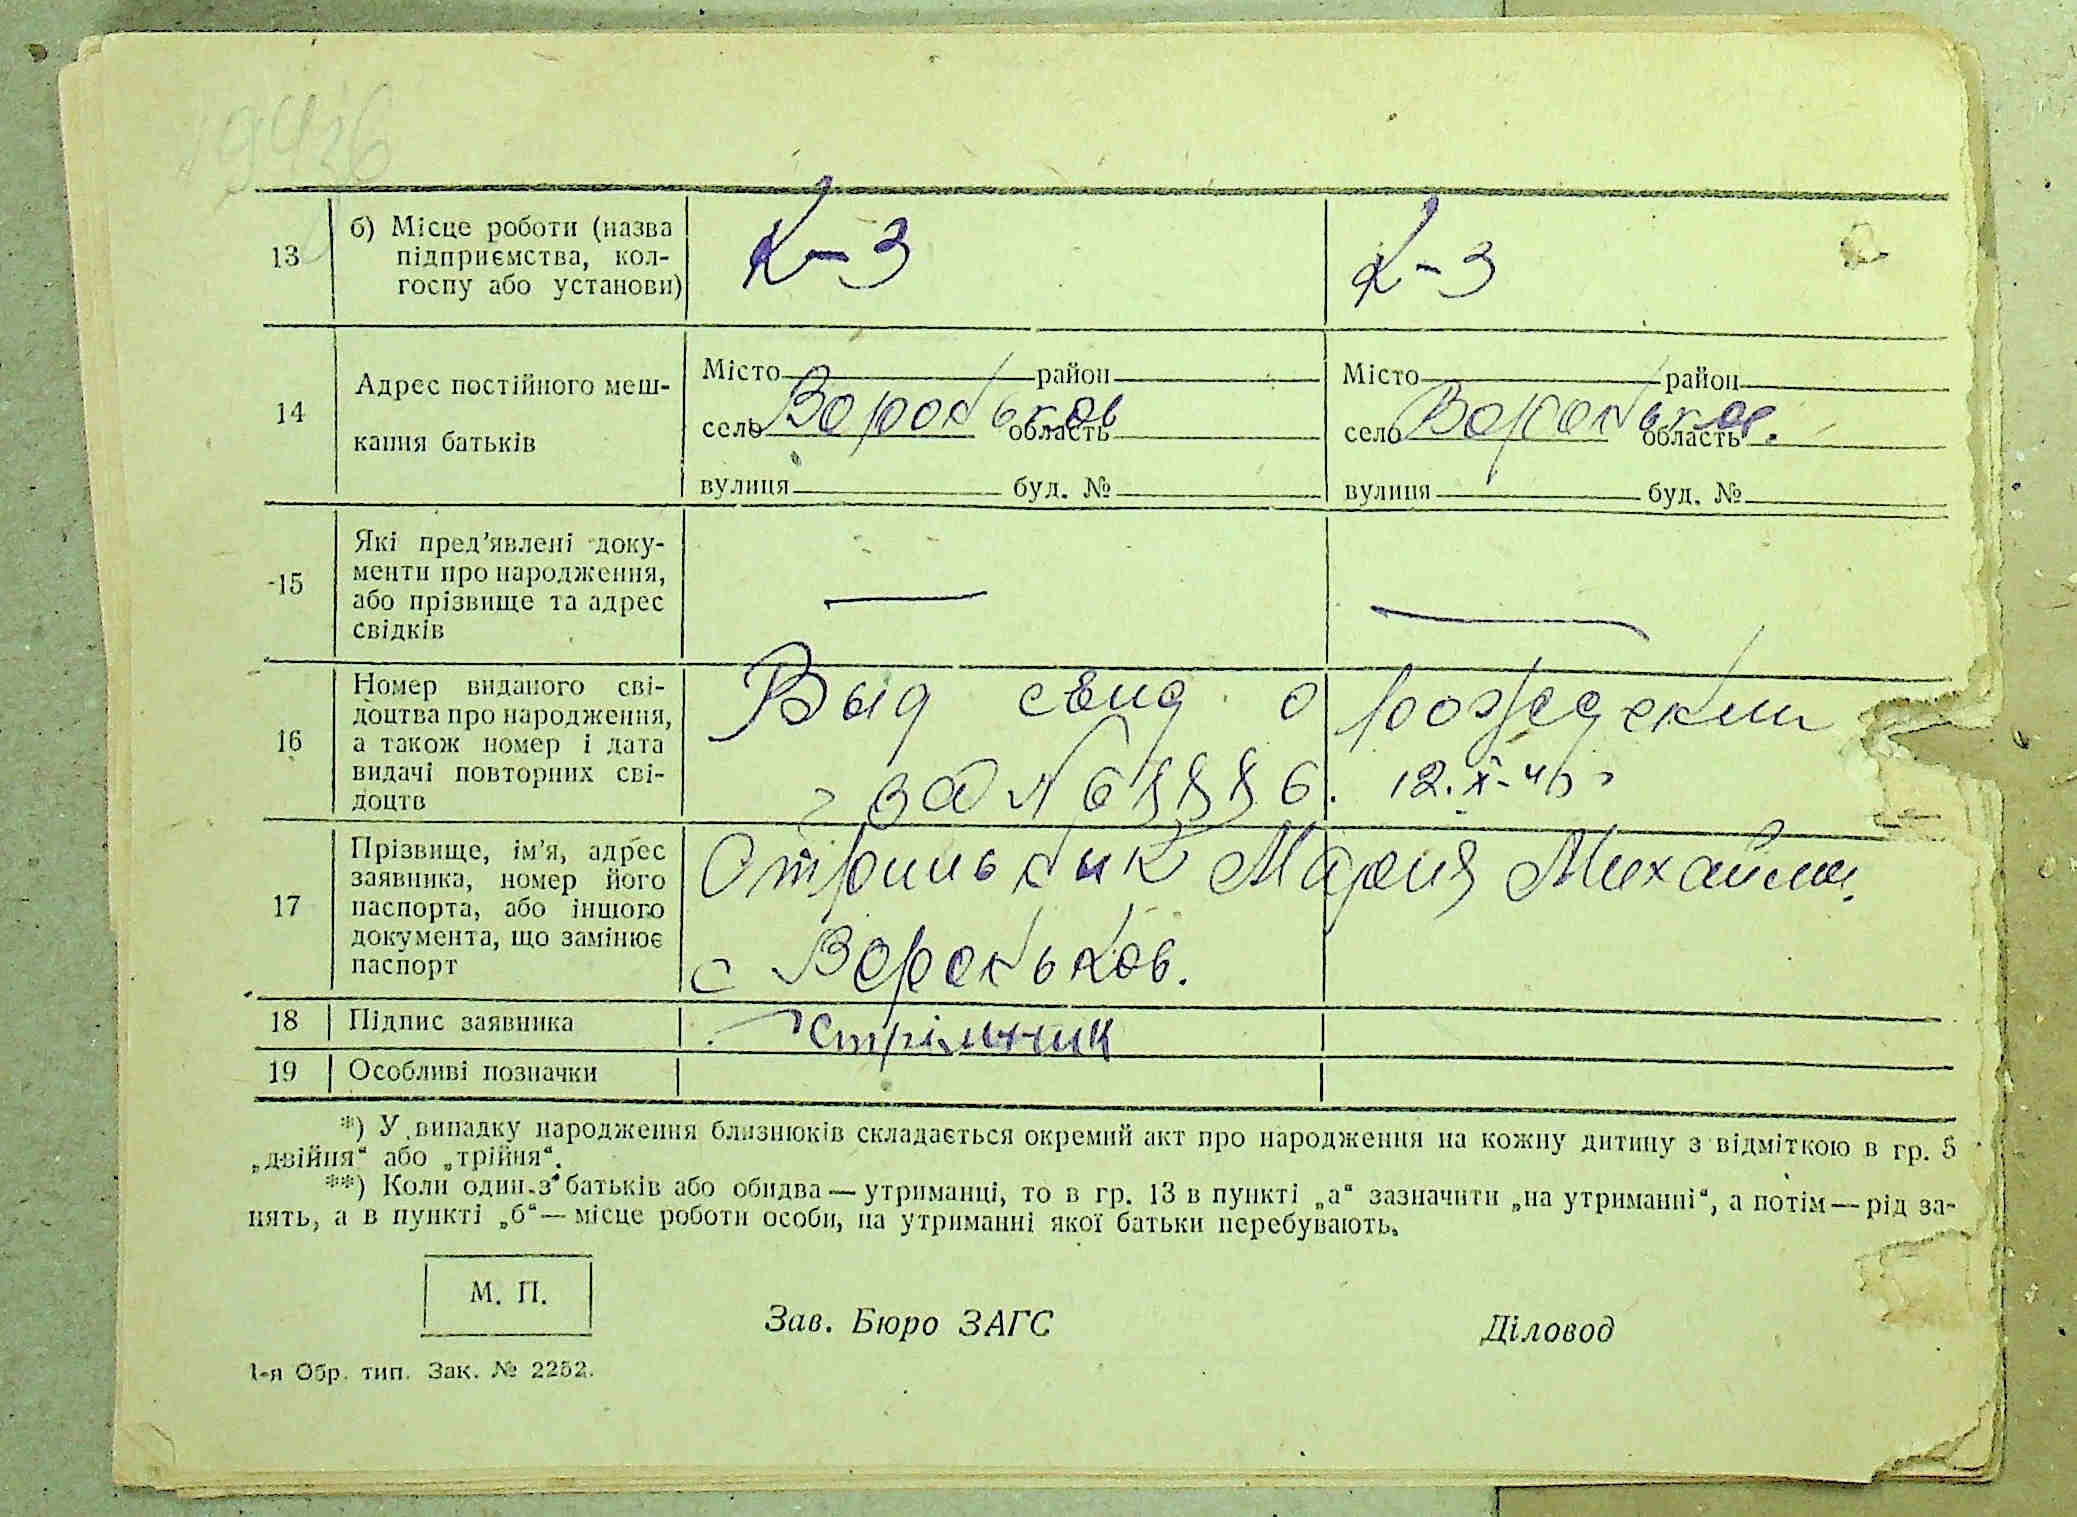 1946
13
б) Місце роботи (назва підприємства, кол-
госпу або установи)
К-З
К-З
14
Адрес постійного меш-
кання батьків
Місто район
село Воробьков область
вулиця буд. №
Місто район
село Воробьков. область
вулиця буд. №
15
Які пред'явлені доку-
менти про народження,
або прізвище та адрес
свідків
—
—
16
Номер виданого сві-
доцтва про народження,
а також номер і дата
видачі повторних сві-
доцтв
Выд свид о рождении
за № 6
17
Прізвище, ім'я, адрес
заявника, номер його
паспорта, або іншого
документа, що замінює
паспорт
Мария Михайлов.
с Воробьков.
18
Підпис заявника
Стрільник
19
Особливі позначки
*) У випадку народження близнюків складається окремий акт про народження на кожну дитину з відміткою в гр. 5
„двійня“ або „трійня“.
**) Коли один з батьків або обидва — утриманці, то в гр. 13 в пункті „а“ зазначити „на утриманні“, а потім — рід за-
нять, а в пункті „б“ — місце роботи особи, на утриманні якої батьки перебувають.
М. П.
Зав. Бюро ЗАГС
Діловод
1-я Обр. тип. Зак. № 2252.